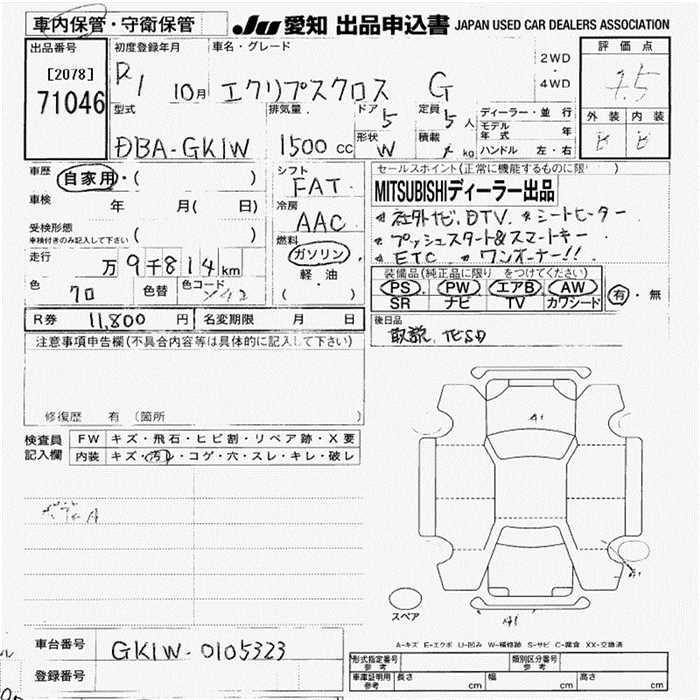 車内保管・守衛保管
JU 愛知 出品申込書 JAPAN USED CAR DEALERS ASSOCIATION
出品番号
[2078]
71046
初度登録年月
R1 10月
車名・グレード
エクリプスクロス G
2WD
4WD
評価点
4.5
外装 内装
B B
型式
DBA-GK1W
排気量
1500 cc
ドア
5
形状
W
定員
5人
積載
kg
ディーラー・並行
モデル年式 年
ハンドル 左・右
車歴
自家用・( )
車検
年 月( 日)
受検形態
車検付きのみ記入して下さい
( )
走行
万 9千814km
色
クロ
色替
色コード
X42
シフト
FAT
冷房
AAC
燃料
ガソリン
軽・油
( )
R券 11,800円
名変期限 月 日
セールスポイント(正常に機能するものに限
MITSUBISHIディーラー出品
社外ナビ.DTV. シートヒーター
プッシュスタート&スマートキー
ETC ワンオーナー!!
装備品(純正品に限り をつけてください)
PS PW エアB AW
SR ナビ TV カワシード
有・無
後日品
取説.
注意事項申告欄(不具合内容等は具体的に記入して下さい)
修復歴 有 (箇所 )
検査員
記入欄
FW キズ・飛石・ヒビ割・リペア跡・X要
内装 キズ・汚レ・コゲ・穴・スレ・キレ・破レ
A1
A1
スペア
A-キズ E-エクボ U-凹み W-補修跡 S-サビ C-腐食 XX-交換済
車台番号
GK1W-0105323
登録番号
形式指定番号
参考
類別区分番号
参考
車庫証明用
参考
長さ cm
幅 cm
高さ cm